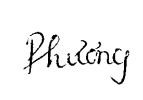 Phương